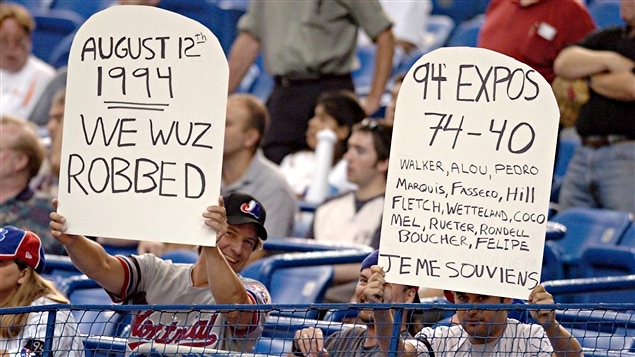 AUGUST 12th
1994
WE WUZ
ROBBED
94' EXPOS
74-40
WALKER, ALOU, PEDRO
MARQUIS, FASSERO, HILL
FLETCH, WETTELAND, COCO
MEL, RUETER, RONDELL
BOUCHER, FELIPE
JE ME SOUVIENS
Montreal